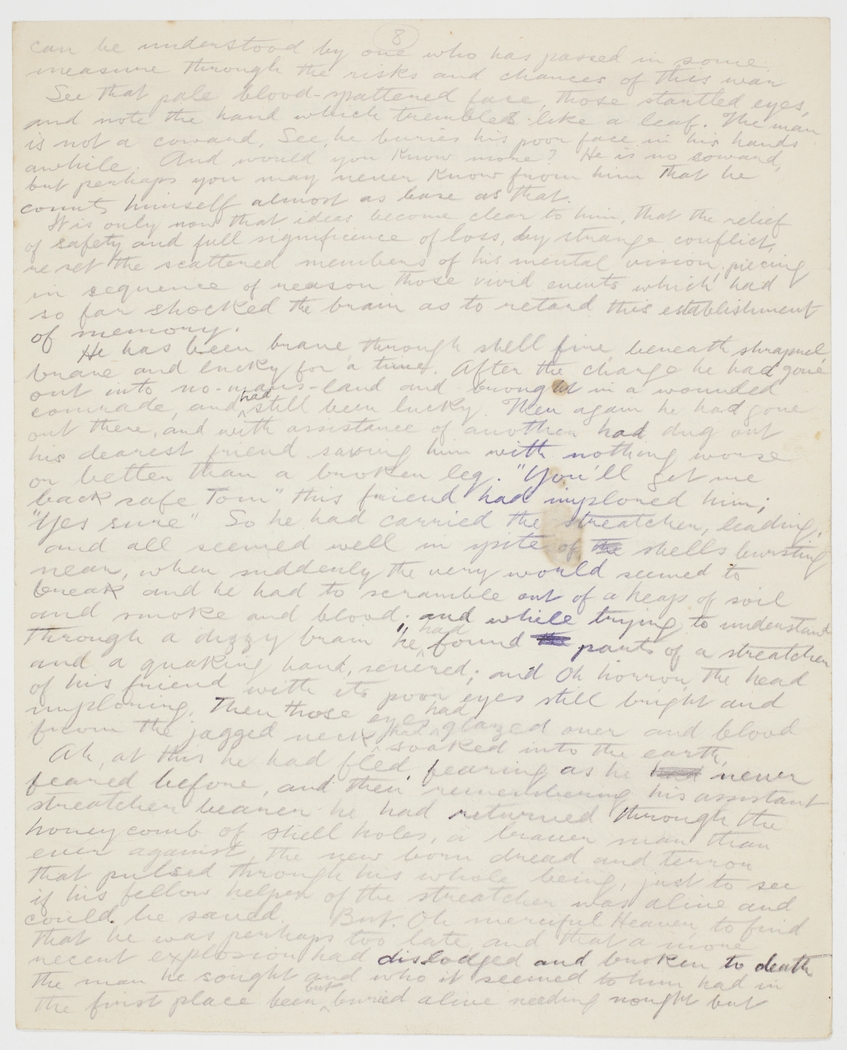 8
can be understood by one who has passed in some
measure through the risks and chances of this war
See that pale blood-spattered face, those startled eyes,
and note the hand which trembles like a leaf. The man
is not a coward, See, he buries his poor face in his hands
awhile. And would you know more? He is no coward,
but perhaps you may never know from him that he
counts himself almost as base as that.
It is only now that ideas become clear to him, that the relief
of safety and full significence of loss, by strange conflict,
reset the scattered members of his mental vision, piecing
in sequence of reason those vivid events which had
so far shocked the brain as to retard this establishment
of memory.
He has been brave, through shell fire, beneath shrapnel,
brave and lucky for a time. After the charge he had gone
out into no-mans-land and brought in a wounded
comrade, and had still been lucky. Then again he had gone
out there, and with assistance of another had dug out
his dearest friend saving him with nothing worse
or better than a broken leg. "You'll get me
back safe Tom" this friend had implored him;
"Yes sure" So he had carried the streatcher, leading,
and all seemed well in spite of the shells bursting
near, when suddenly the very world seemed to
break and he had to scramble out of a heap of soil
and smoke and blood; and while trying to understand
through a dizzy brain he had found parts of a streatcher
and a quaking hand, severed; and Oh horror, the head
of his friend with its poor eyes still bright and
imploring. Then those eyes had glazed over and blood
from the jagged neck had soaked into the earth.
Ah, at this he had fled, fearing as he never
feared before, and then remembering his assistant
streatcher bearer he had returned through the
honeycomb of shell holes, a braver man than
ever against the new born dread and terror
that pulsed through his whole being, just to see
if his fellow helper of the streatcher was alive and
could be saved. But, Oh merciful Heaven to find
that he was perhaps too late, and that a more
recent explosion had dislodged and broken to death
the man he sought and who it seemed to him had in
the first place been but buried alive needing nought but